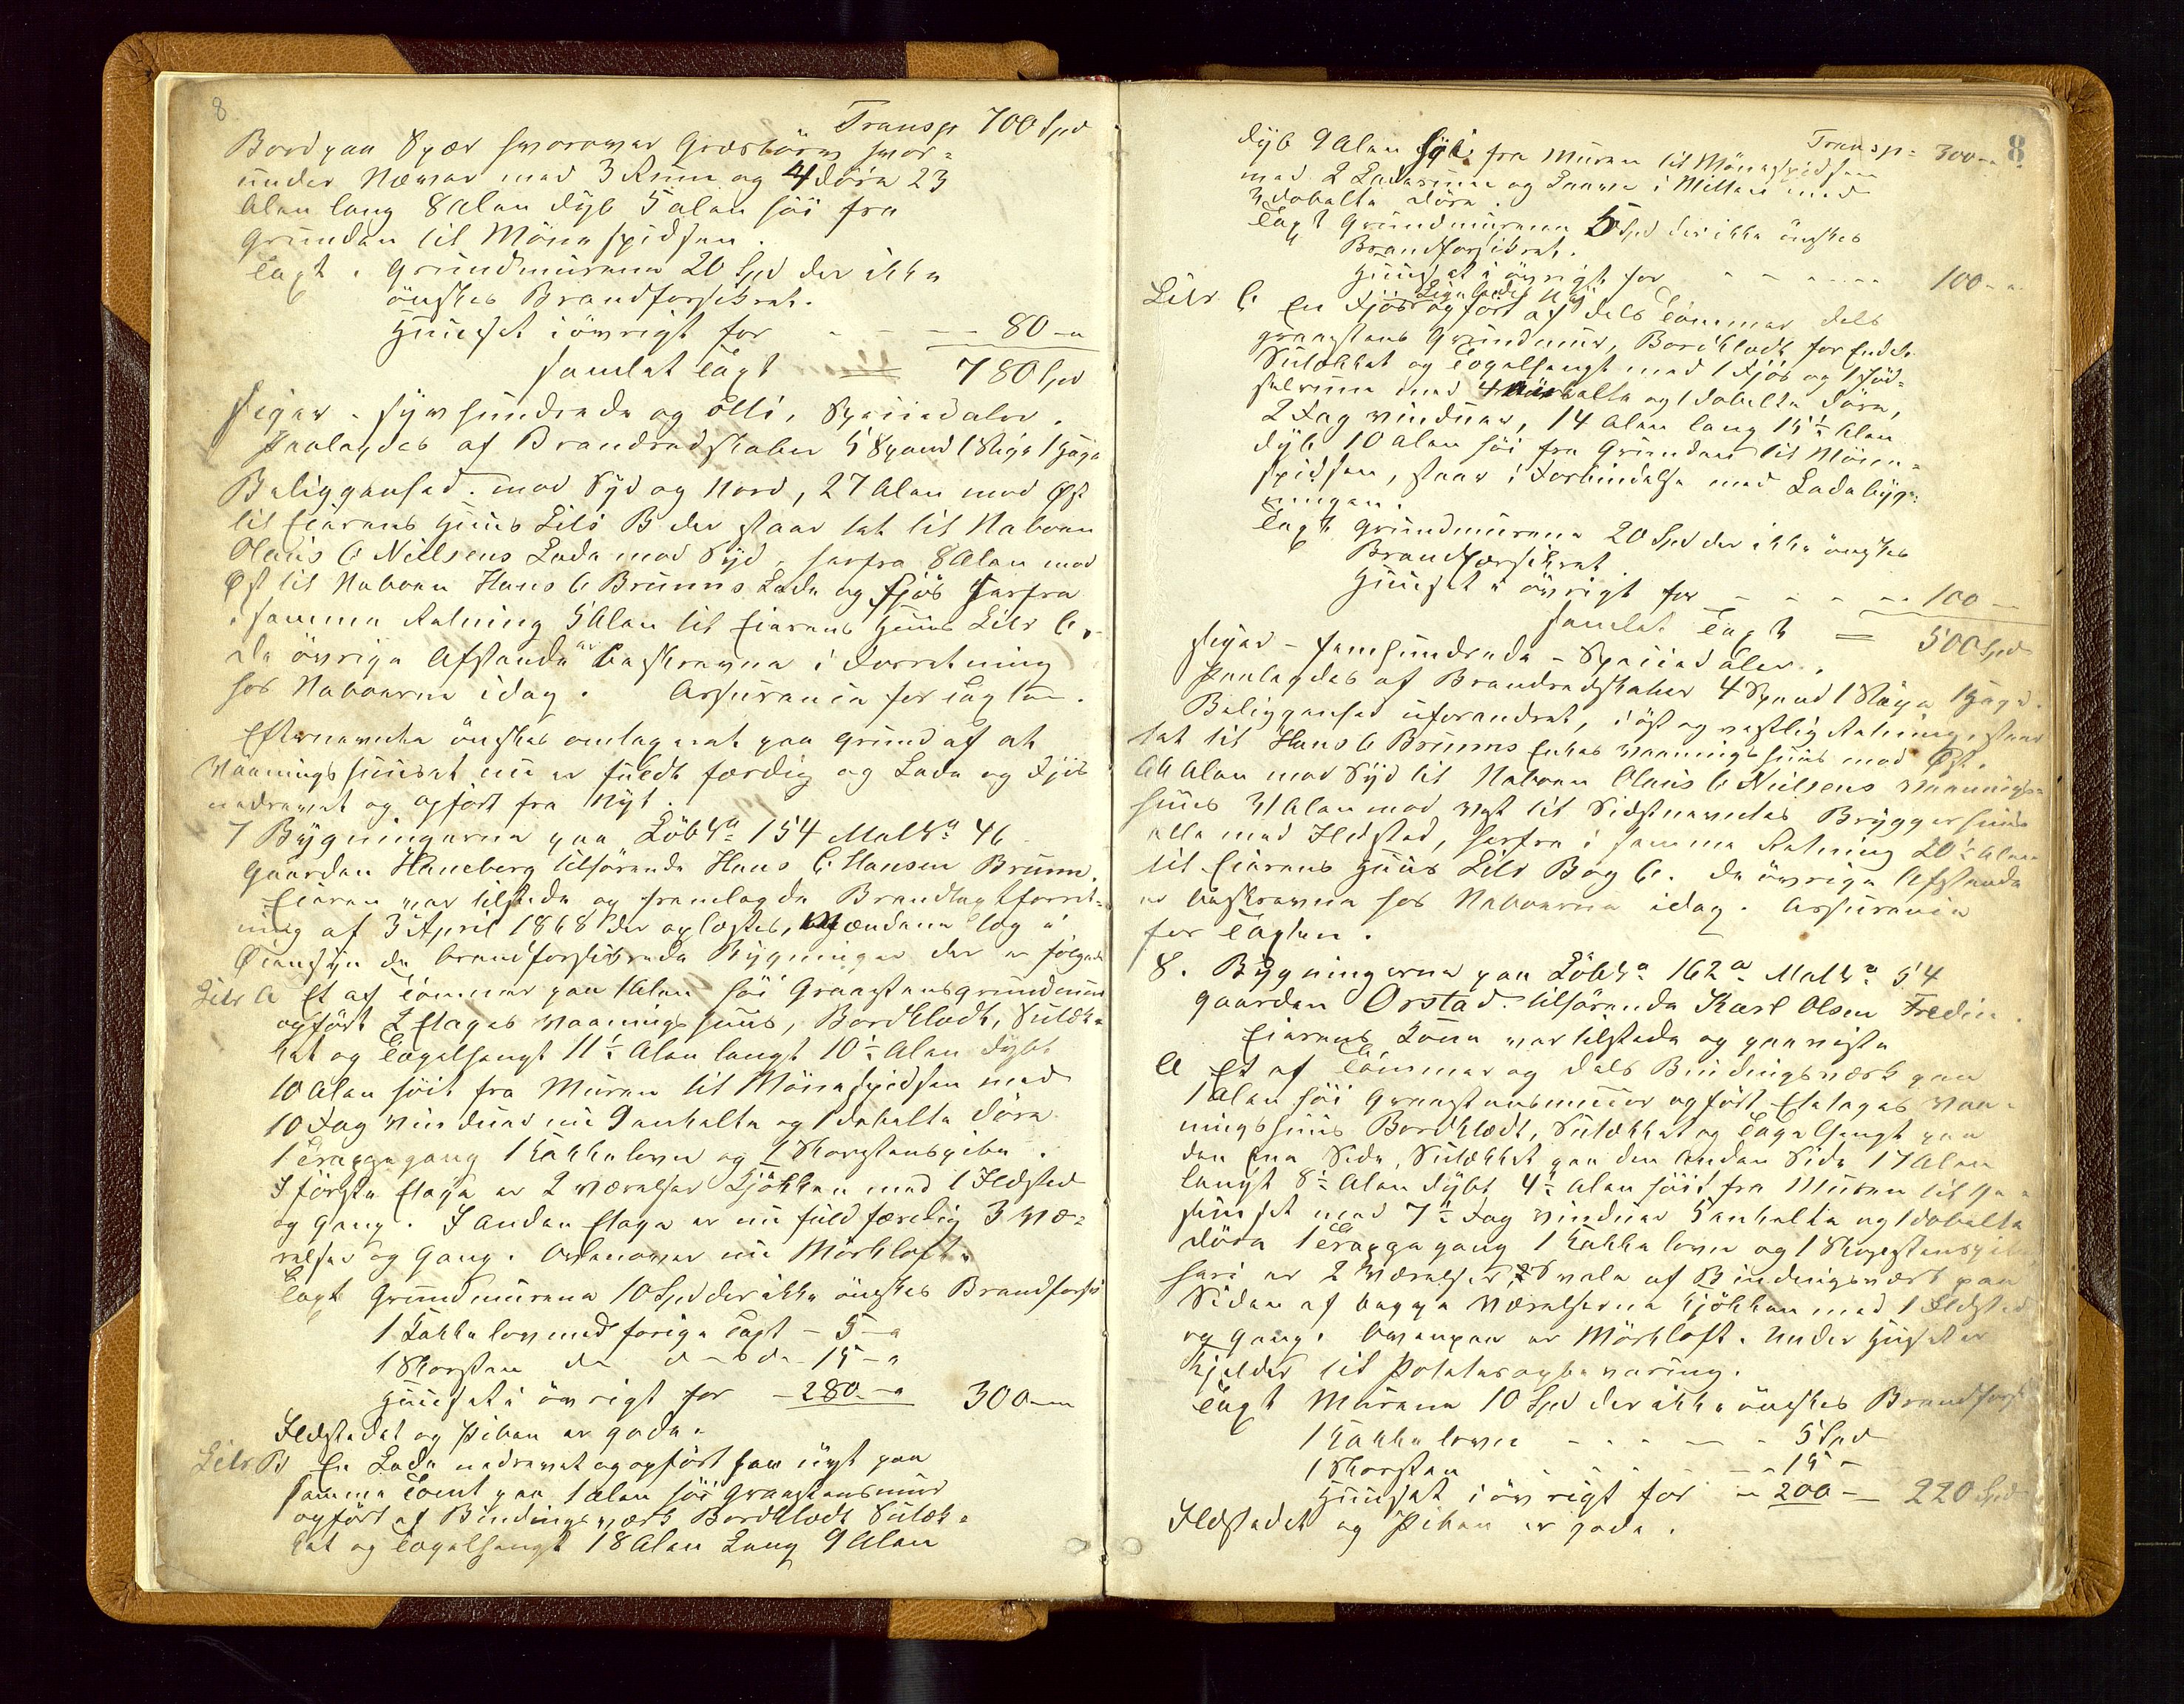 8
Transp 700 Spd
Bord paa Spær hvorover Græstörv hvor-
under Næver med 3 Rum og 4 Döre 23
Alen lang 8 Alen dyb 5 alen höi fra
Grunden til Mönespidsen.
Taxt. Grundmurene 20 Spd der ikke
önskes Brandforsikret.
Huuset iövrigt for - - - 80 - "
Samlet Taxt = 780 Spd
siger - syvhundrede og otti, Speciedaler.
Paalagdes af Brandredskaber 5 Spand 1 Stige 1 Hage
Beliggenhed. mod Syd og Nord, 27 Alen mod Øst
til Eierens Huus Litr B der staar tæt til Naboen
Olaus C Nielsens Lade mod Syd, herfra 8 Alen mod
Øst til Naboen Hans C Bruuns Lade og Fjös herfra
i samme Retning 5 Alen til Eierens Huus Litr C,
de övrige Afstande er beskrevne i Forretning
hos Naboerne idag. Assurancen for Taxten.
Efternævnte önskes omtaxeret paa Grund af at
Vaaningshuuset nu er fuldt færdig og Lade og Fjös
nedrevet og opfört fra Nyt.
7 Bygningerne paa LöbNo 154 MatNo 46
Gaarden Haneberg tilhörende Hans C. Hansen Bruun.
Eieren var tilstede og fremlagde Brandtaxtforret-
ning af 3 April 1868 der oplæstes, Mændene tog i
Øiensyn de brandforsikrede Bygninger der er fölgende
Litr A Et af Tömmer paa 1 Alen höi Graastensgrundmuur
opfört 2 Etages Vaaningshuus, Bordklædt, Sutæk-
ket og Tegelhængt 11½ Alen langt 10½ Alen dybt
10 Alen höit fra Muren til Mönespidsen med
10 Fag Vinduer nu 9 enkelte og 1 dobelte Döre
1 Trappegang 1 Kakkelovn og 1 Skorstenspibe.
I förste Etage er 2 Værelser Kjökken med 1 Ildsted
og Gang. I Anden Etage er nu fuld færdig 3 Væ-
relser og Gang. Ovenover nu Mörkloft.
Taxt Grundmurene 10 Spd der ikke önskes Brandforsi
1 Kakkelovn med forige Taxt - 5 - "
1 Skorsten do do do - 15 - "
Huuset i övrigt for - 280 - " 300 - "
Ildstedet og Piben er gode.
Litr B En Lade nedrevet og opfört fra nyt paa
samme Tomt paa 1 Alen höi Graastensmuur
opfört af Bindingsværk Bordklædt Sutæk-
ket og Tegelhængt 18 Alen Lang 9 Alen
Transp - 300 - "
8
dyb 9 Alen höi fra Muren til Mönespidsen
med 2 Laderum og Laave i Mitten med
3 dobelte Döre.
Taxt Grundmurene 5 Spd der ikke önskes
Brandforsikret.
Huuset i övrigt for - - - - 100 - "
Litr C En Fjös ligeledes Nyt opfört af dels Tömmer dels
graastens Grundmur, Bordklædt for Endel
Sutækket og Tegelhængt med 1 Fjös og 1 Göd-
selrum med 4 enkelte og 1 dobelte Döre,
2 Fag vinduer, 14 Alen lang 11½ Alen
dyb 10 Alen höi fra Grunden til Möne-
spidsen, staar i Forbindelse med Ladebyg-
ningen.
Taxt Grundmurene 20 Spd der ikke önskes
Brandforsikret
Huuset i övrigt for - - - - 100 -
Samlet Taxt = 500 Spd
siger - femhundrede - Speciedaler.
Paalagdes af Brandredskaber 4 Spand 1 Stige 1 Hage.
Beliggenhed uforandret, i öst og vestlig Retning, staar
tæt til Hans C Bruuns Enkes Vaaningshuus mod Øst.
Alen mod Syd til Naboen Olaus C Nielsens Vaanings-
huus 31 Alen mod Vest til Sidstnævntes Bryggerhuus
alle med Ildsted, herfra i samme Retning 20½ Alen
til Eierens Huus Litr B og C. De övrige Afstande
er beskrevne hos Naboerne idag. Assurancen
for Taxten.
8. Bygningerne paa LöbNo 162a MatNo 54
Gaarden Orstad tilhörende Karl Olsen Fredin.
Eierens Kone var tilstede og paaviste
A Et af Tömmer og dels Bindingsværk paa
1 Alen höi Graastensmuur opfört Etetages Vaa-
ningshuus Bordklædt, Sutækket og Tegelhængt paa
den ene Side, Sutækket paa den Anden Side 17 Alen
langt 8½ Alen dybt 4½ Alen höit fra Muren til Ge-
simset med 7½ Fag vinduer 5 enkelte og 1 dobelte
Döre 1 Trappegang 1 Kakkelovn og 1 Skorstenspibe
heri er 2 Værelser, 2 Svale af Bindingsværk paa
Siden af begge Værelserne Kjökken med 1 Ildsted
og Gang. Ovenpaa er Mörkloft. Under Huset er
Kjelder til Potetesopbevaring.
Taxt Murene 10 Spd der ikke önskes Brandforsi
1 Kakkelovn - - - - - 5 Spd
1 Skorsten - - - - 15 -
Huuset iövrigt for - 200 - 220 Spd
Ildstedet og Piben er gode.